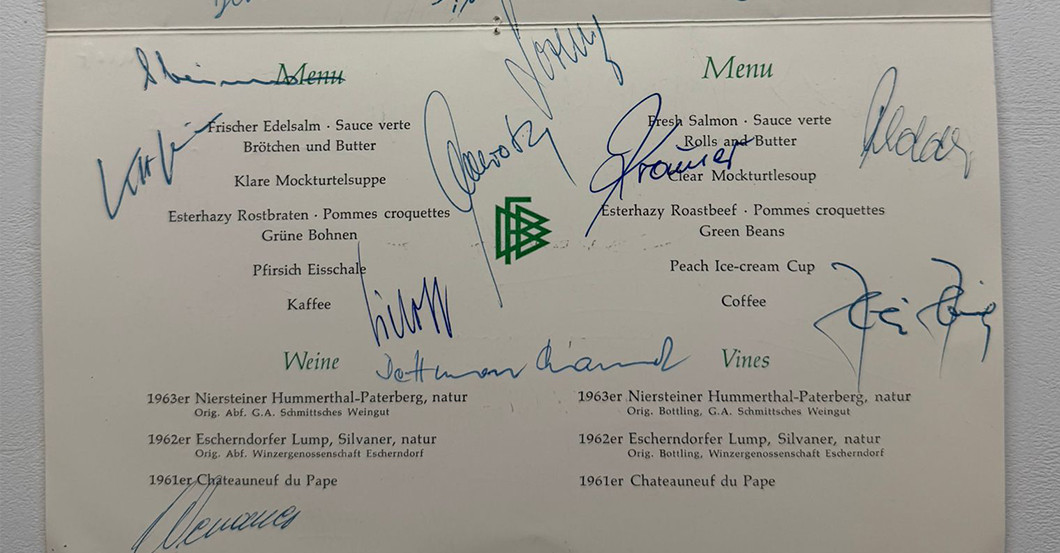 Menu
Frischer Edelsalm · Sauce verte
Brötchen und Butter
Klare Mockturtelsuppe
Esterhazy Rostbraten · Pommes croquettes
Grüne Bohnen
Pfirsich Eisschale
Kaffee
Weine
1963er Niersteiner Hummerthal-Paterberg, natur
Orig. Abf. G.A. Schmittsches Weingut
1962er Escherndorfer Lump, Silvaner, natur
Orig. Abf. Winzergenossenschaft Escherndorf
1961er Chateauneuf du Pape
DFB
Menu
Fresh Salmon · Sauce verte
Rolls and Butter
Clear Mockturtlesoup
Esterhazy Roastbeef · Pommes croquettes
Green Beans
Peach Ice-cream Cup
Coffee
Vines
1963er Niersteiner Hummerthal-Paterberg, natur
Orig. Bottling, G.A. Schmittsches Weingut
1962er Escherndorfer Lump, Silvaner, natur
Orig. Bottling, Winzergenossenschaft Escherndorf
1961er Chateauneuf du Pape
Krämer